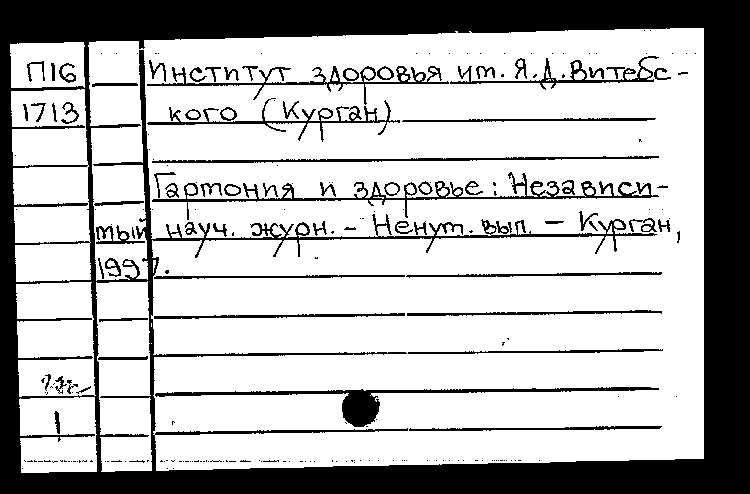 П16 Институт здоровья им. Я.Д.Витебс-
1713 кого (Курган)
Гармония и здоровье: Независи-
мый науч. журн. - Ненум. вып. - Курган,
1997.
!